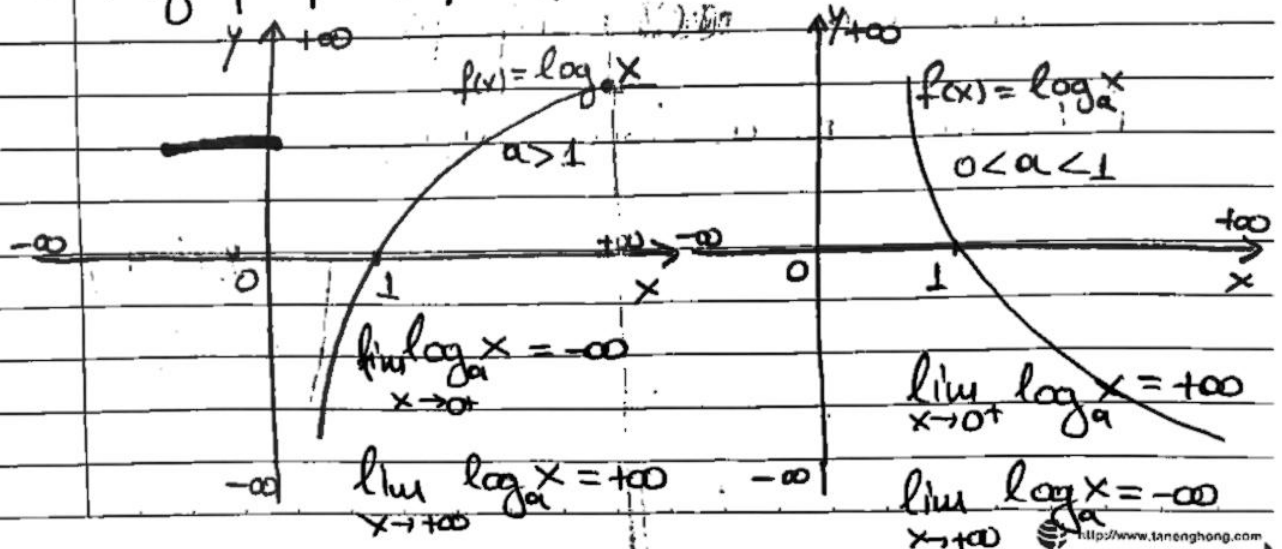 y +∞
f(x) = log_a x
a > 1
-∞ 0 1 +∞ x
lim log_a x = -∞
x→0⁺
-∞
lim log_a x = +∞
x→+∞
y +∞
f(x) = log_a x
0 < a < 1
-∞ 0 1 +∞ x
lim log_a x = +∞
x→0⁺
-∞
lim log_a x = -∞
x→+∞
http://www.tanenghong.com